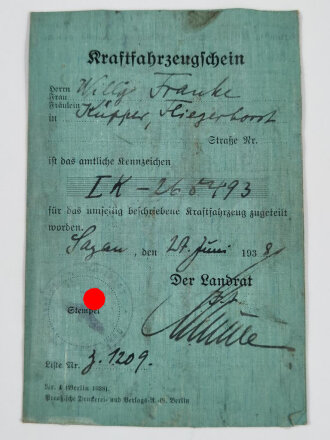 Kraftfahrzeugschein
Herrn
Frau Willy Franke
Fräulein
in Küpper, Fliegerhorst
Straße Nr.
ist das amtliche Kennzeichen
IK - 265493
für das umseitig beschriebene Kraftfahrzeug zugeteilt
worden.
Sagan, den 27. Juni 1938
Der Landrat
Stempel
Liste Nr. z. 1209.
(Berlin 1938)
Preußische Druckerei- und Verlags-A.-G. Berlin